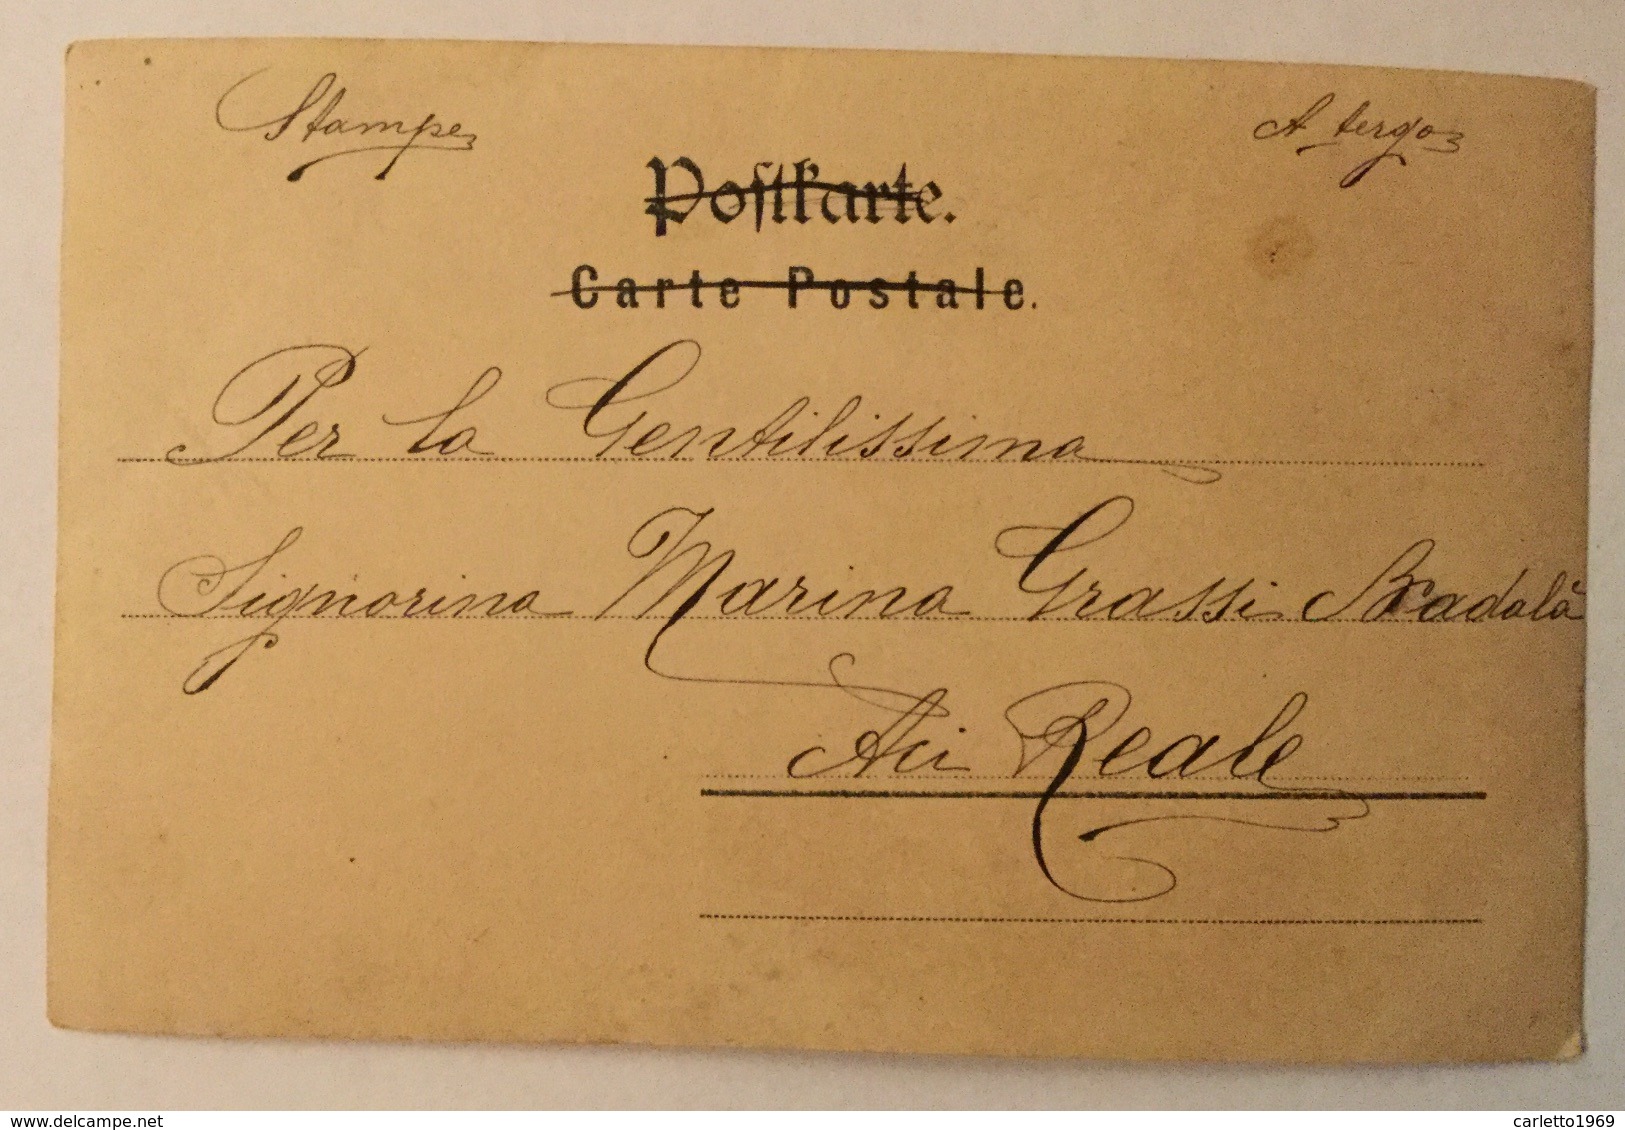 Stampe
A tergo
Postkarte.
Carte Postale.
Per la Gentilissima
Signorina Marina Grassi Badalà
Aci Reale
www.delcampe.net
carletto1969